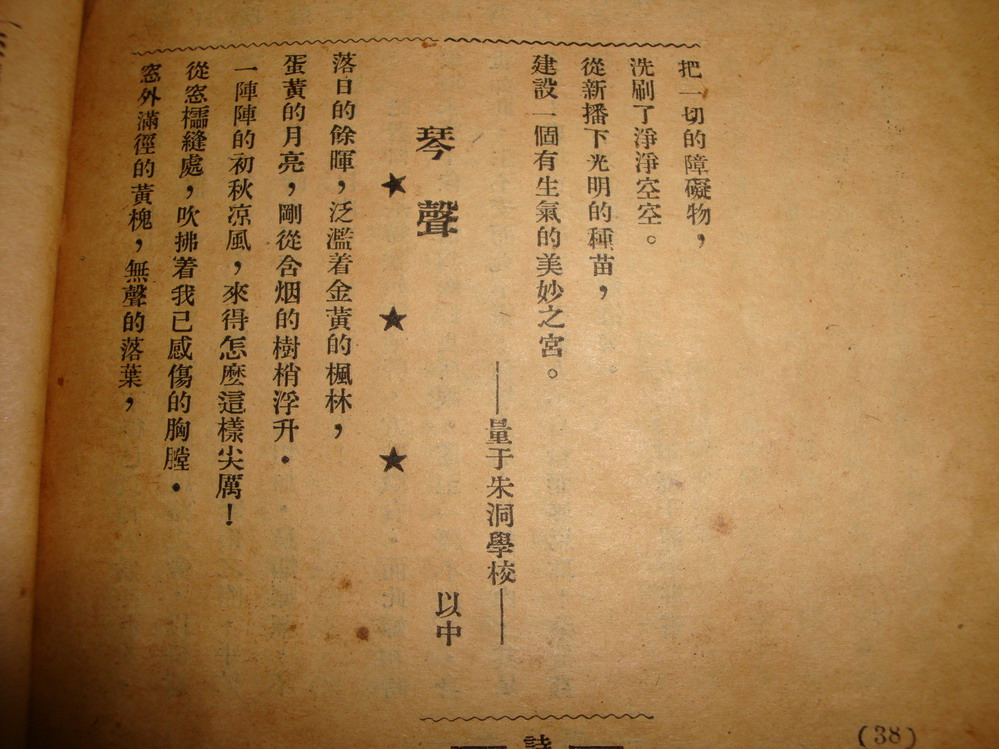 把一切的障礙物，
洗刷了淨淨空空。
從新播下光明的種苗，
建設一個有生氣的美妙之宮。
——量于朱洞學校——
琴聲 以中
★ ★ ★
落日的餘暉，泛濫着金黃的楓林，
蛋黃的月亮，剛從含烟的樹梢浮升．
一陣陣的初秋凉風，來得怎麽這樣尖厲！
從窓櫺縫處，吹拂着我已感傷的胸膛．
窓外滿徑的黃槐，無聲的落葉，
詩
(38)